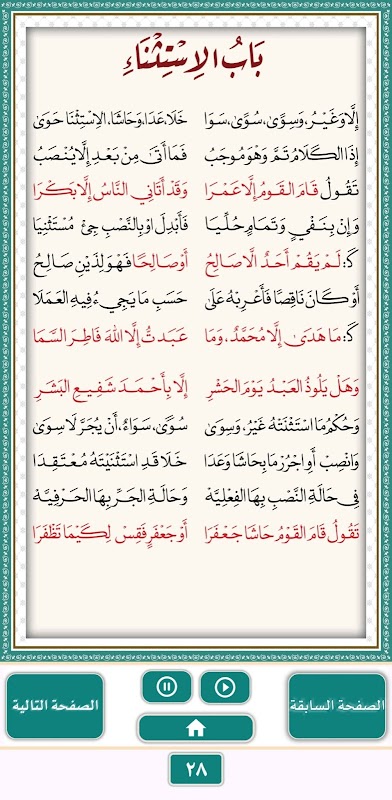 بَابُ الِاسْتِثْنَاءِ
إِلَّا وَغَيْرُ، وَسِوًى، سُوًى، سَوَا خَلَا، عَدَا، وَحَاشَا، الِاسْتِثْنَا حَوَى
إِذَا الْكَلَامُ تَمَّ وَهْوَ مُوجَبُ فَمَا أَتَى مِنْ بَعْدِ إِلَّا يُنْصَبُ
تَقُولُ قَامَ الْقَوْمُ إِلَّا عَمْرَا وَقَدْ أَتَانِي النَّاسُ إِلَّا بَكْرَا
وَإِنْ بِنَفْيٍ وَتَمَامٍ حُلِّيَا فَأَبْدِلْ اوْ بِالنَّصْبِ جِئْ مُسْتَثْنِيَا
كَـ: لَمْ يَقُمْ أَحَدٌ الَّا صَالِحُ أَوْ صَالِحًا فَهْوَ لِذَيْنِ صَالِحُ
أَوْ كَانَ نَاقِصًا فَأَعْرِبْهُ عَلَى حَسَبِ مَا يَجِيءُ فِيهِ الْعَمَلَا
كَـ: مَا هَدَى إِلَّا مُحَمَّدٌ، وَمَا عَبَدتُّ إِلَّا اللهَ فَاطِرَ السَّمَا
وَهَلْ يَلُوذُ الْعَبْدُ يَوْمَ الْحَشْرِ إِلَّا بِأَحْمَدَ شَفِيعِ الْبَشَرِ
وَحُكْمُ مَا اسْتَثْنَتْهُ غَيْرُ، وَسِوَى سُوًى، سَوَاءٌ، أَنْ يُجَرَّ لَا سِوَى
وَانْصِبْ أَوِ اجْرُرْ مَا بِحَاشَا وَعَدَا خَلَا قَدِ اسْتَثْنَيْتَهُ مُعْتَقِدَا
فِي حَالَةِ النَّصْبِ بِهَا الْفِعْلِيَّهْ وَحَالَةِ الْجَرِّ بِهَا الْحَرْفِيَّهْ
تَقُولُ قَامَ الْقَوْمُ حَاشَا جَعْفَرَا أَوْ جَعْفَرٍ فَقِسْ لِكَيْمَا تَظْفَرَا
الصفحة السابقة
الصفحة التالية
٢٨